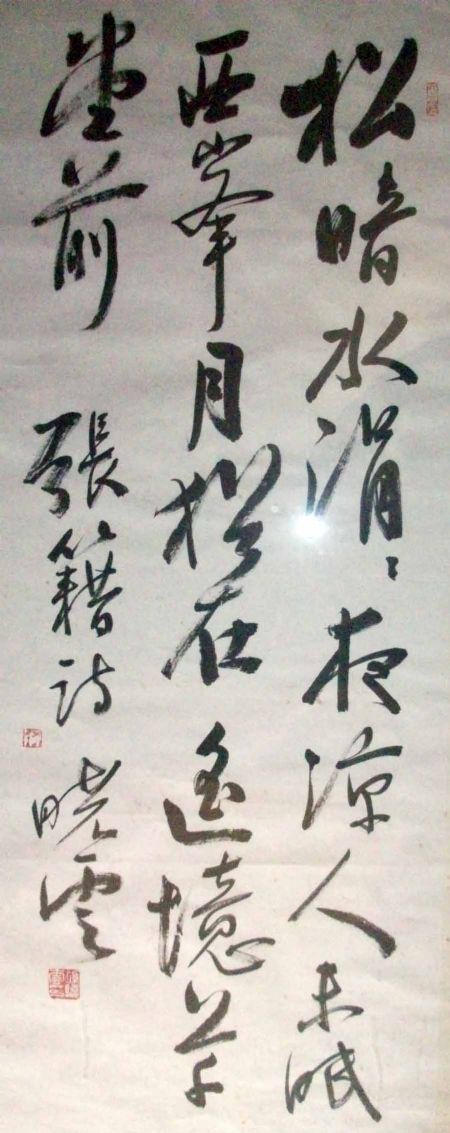 松暗水涓〻夜涼人未眠
西峯月猶在遙憶草
堂前
張籍詩 曉雲